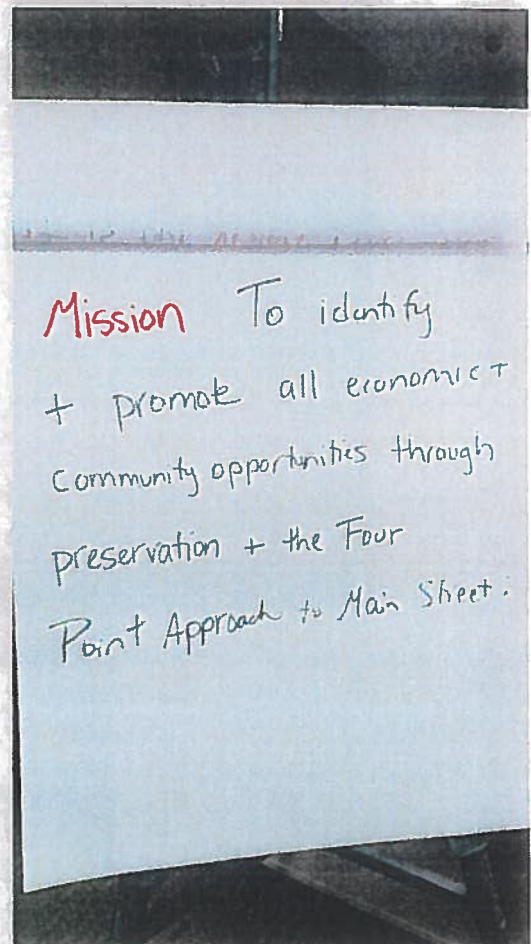 Mission To identify
+ promote all economic +
community opportunities through
preservation + the Four
Point Approach to Main Street.